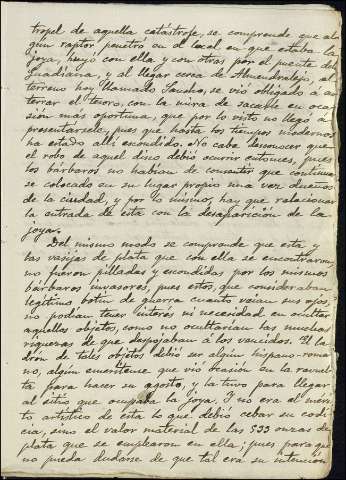 tropel de aquella catástrofe, se comprende que al-
gun raptor penetró en el local en que estaba la
joya, huyó con ella y con otras por el puente del
Guadiana, y al llegar cerca de Almendralejo, al
terreno hoy llamado Sancho, se vió obligado á en-
terrar el tesoro, con la mira de sacarle en oca-
sión más oportuna, que por lo visto no llegó á
presentársele, pues que hasta los tiempos modernos
ha estado allí escondido. No cabe desconocer que
el robo de aquel disco debió ocurrir entonces, pues
los bárbaros no habian de consentir que continua-
se colocado en su lugar propio una vez dueños
de la ciudad, y por lo mismo, hay que relacionar
la entrada de esta con la desaparición de la
joya.
Del mismo modo se comprende que esta y
las vasijas de plata que con ella se encontraron,
no fueron pilladas y escondidas por los mismos
bárbaros invasores, pues estos, que consideraban
legítimo botin de guerra cuanto veian sus ojos,
no podian tener interés ni necesidad en ocultar
aquellos objetos, como no ocultarian las muchas
riquezas de que despojaban á los vencidos. El la-
drón de tales objetos debió ser algún hispano-roma
no, algún emeritense que vió ocasión en la revuel-
ta para hacer su agosto, y la tuvo para llegar
al sitio que ocupaba la joya. Y nó era el méri-
to artístico de ésta lo que debió cebar su codi-
cia, sino el valor material de las 533 onzas de
plata que se emplearon en ella; pues para que
no pueda dudarse de que tal era su intención